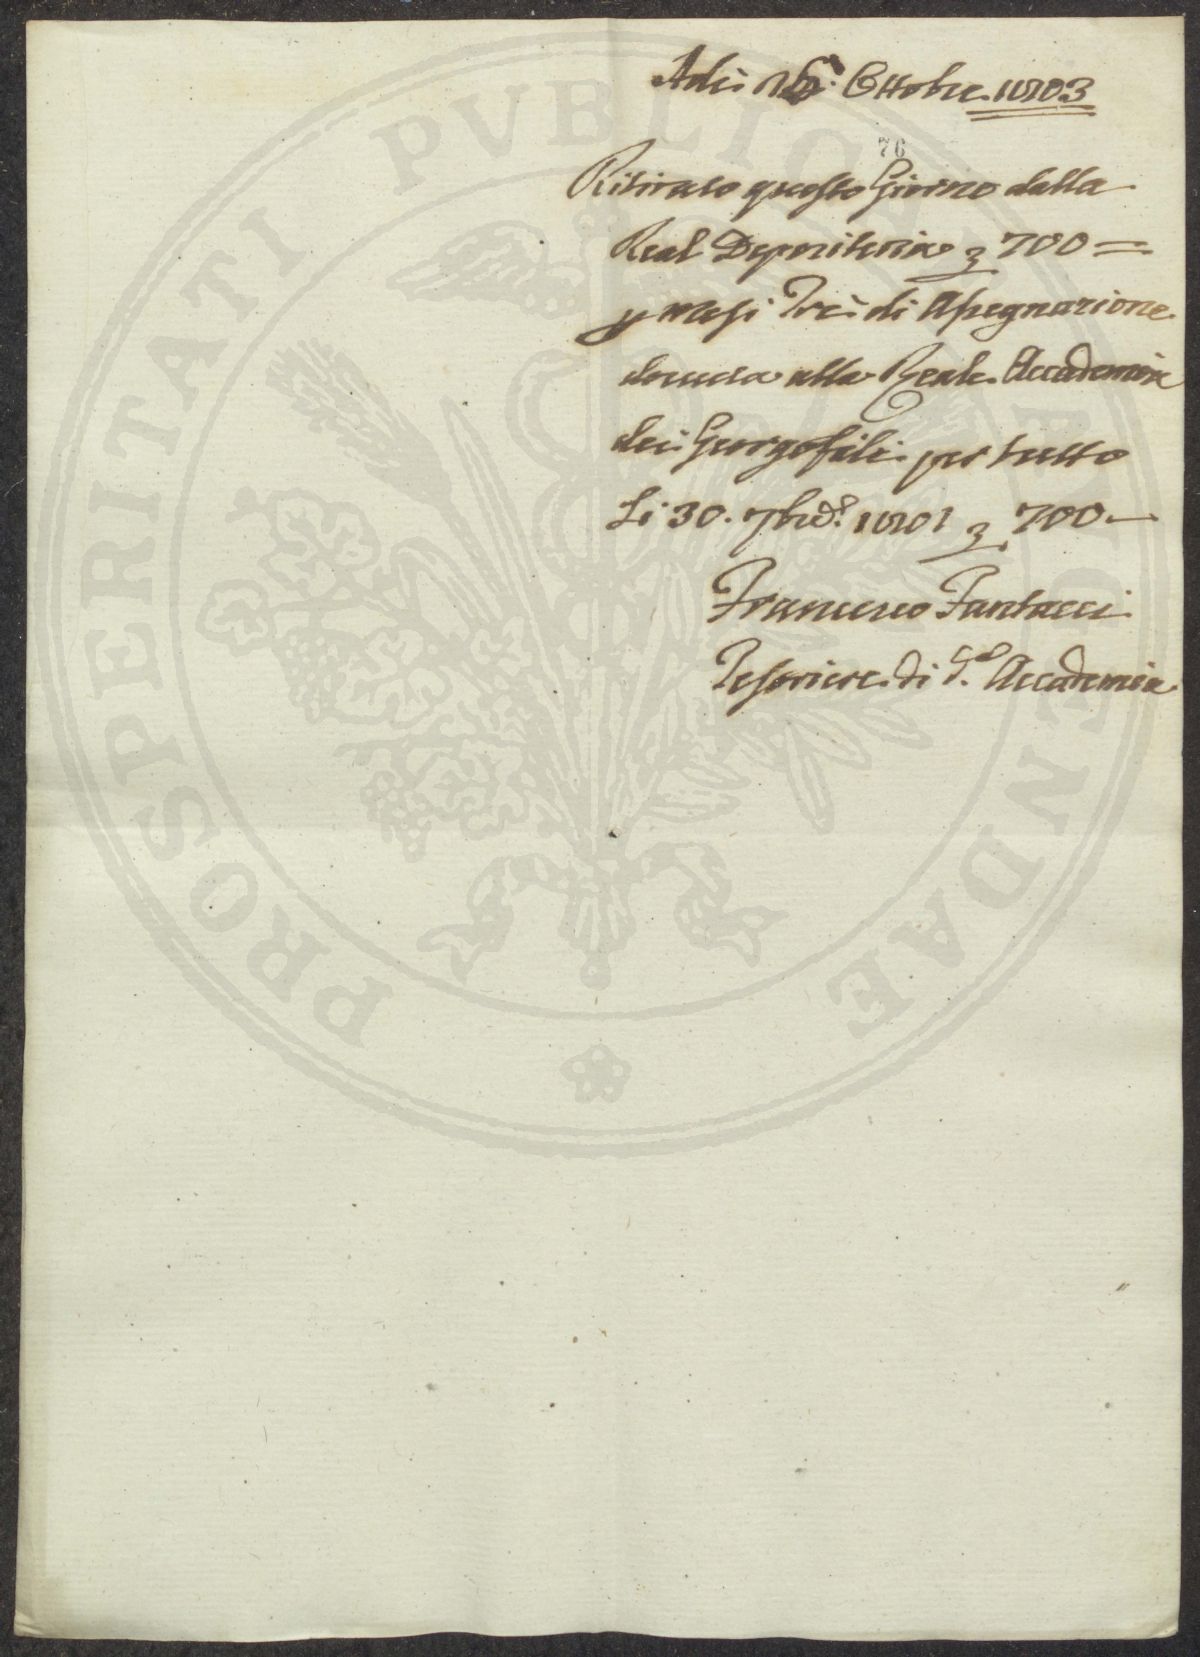 Adì Ottobre 1803
76
Ritirato questo Giorno dalla
Real Depositeria 700 =
p mesi Tre di Assegnazione
dovuta alla Reale Accademia
dei Georgofili per tutto
Li 30. 7bre 1801 700 —
Francesco Fantacci
Tesoriere di d.a Accademia
PROSPERITATI PVBLICAE AVGENDAE